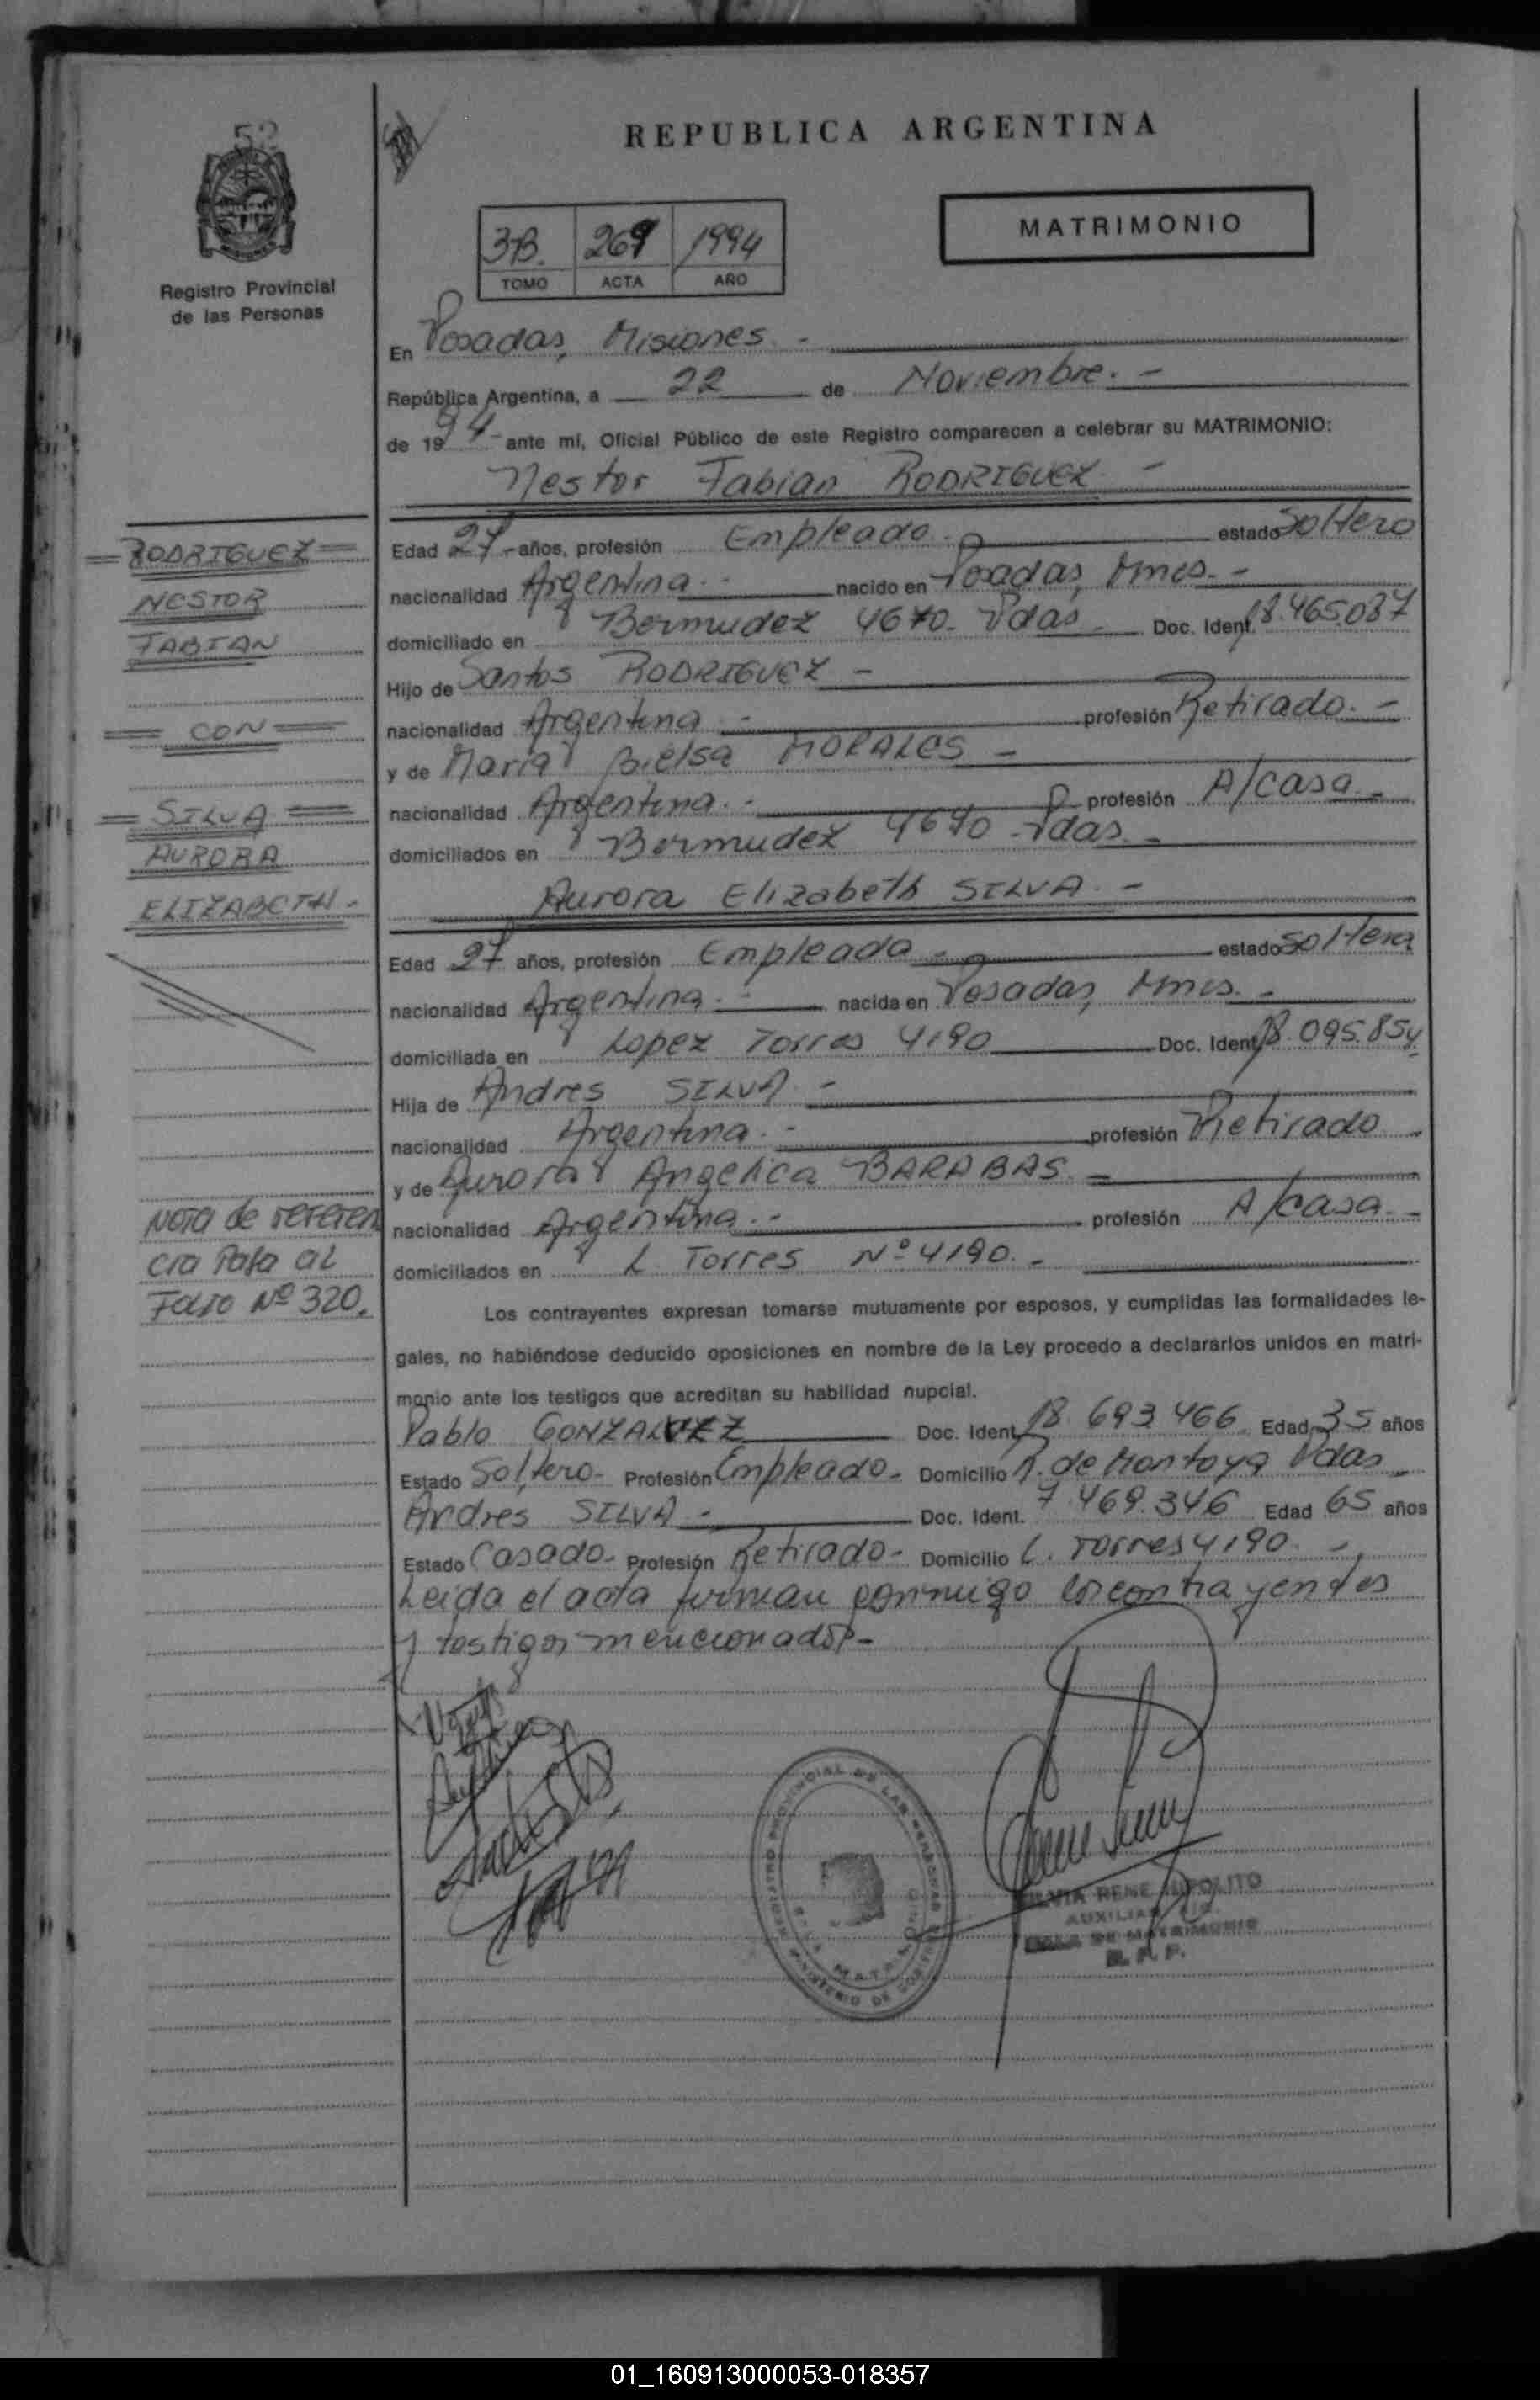 52
REPUBLICA ARGENTINA
MATRIMONIO
3B. 269 1994
TOMO ACTA AÑO
Registro Provincial
de las Personas
En Posadas, Misiones -
República Argentina, a 22 de Noviembre. -
de 1994- ante mí, Oficial Público de este Registro comparecen a celebrar su MATRIMONIO:
Nestor Fabian RODRIGUEZ -
= RODRIGUEZ =
NESTOR
FABIAN
= CON =
= SILVA =
AURORA
ELIZABETH -
Edad 27 - años, profesión Empleado - estado Soltero
nacionalidad Argentina. - nacido en Posadas, Mnes. -
domiciliado en Bermudez 4670 - Pdas - Doc. Ident. 18.465.037
Hijo de Santos RODRIGUEZ -
nacionalidad Argentina - profesión Retirado. -
y de Maria Bielsa MORALES -
nacionalidad Argentina. - profesión A/casa -
domiciliados en Bermudez 4670 - Pdas -
Aurora Elizabeth SILVA. -
Edad 27 años, profesión Empleada - estado Soltera
nacionalidad Argentina. - nacida en Posadas, Mnes. -
domiciliada en Lopez Torres 4190 Doc. Ident. 18.095.854
Hija de Andres SILVA -
nacionalidad Argentina. - profesión Retirado
y de Aurora Angelica BARABAS -
nacionalidad Argentina. - profesión A/casa -
domiciliados en L. Torres Nº 4190. -
Nota de referen
cia Pasa al
Folio Nº 320.
Los contrayentes expresan tomarse mutuamente por esposos, y cumplidas las formalidades le-
gales, no habiéndose deducido oposiciones en nombre de la Ley procedo a declararlos unidos en matri-
monio ante los testigos que acreditan su habilidad nupcial.
Pablo GONZALEZ Doc. Ident. 18.693.466 Edad 35 años
Estado Soltero - Profesión Empleado - Domicilio R. de Montoya Pdas -
Andres SILVA - Doc. Ident. 7.469.346 Edad 65 años
Estado Casado - Profesión Retirado - Domicilio L. Torres 4190 -
Leida el acta firman conmigo los contrayentes
y testigos mencionados -
REGISTRO PROVINCIAL DE LAS PERSONAS
MINISTERIO DE GOBIERNO
SILVIA RENE HIPOLITO
AUXILIAR
SALA DE MATRIMONIO
R. P. P.
01_160913000053-018357